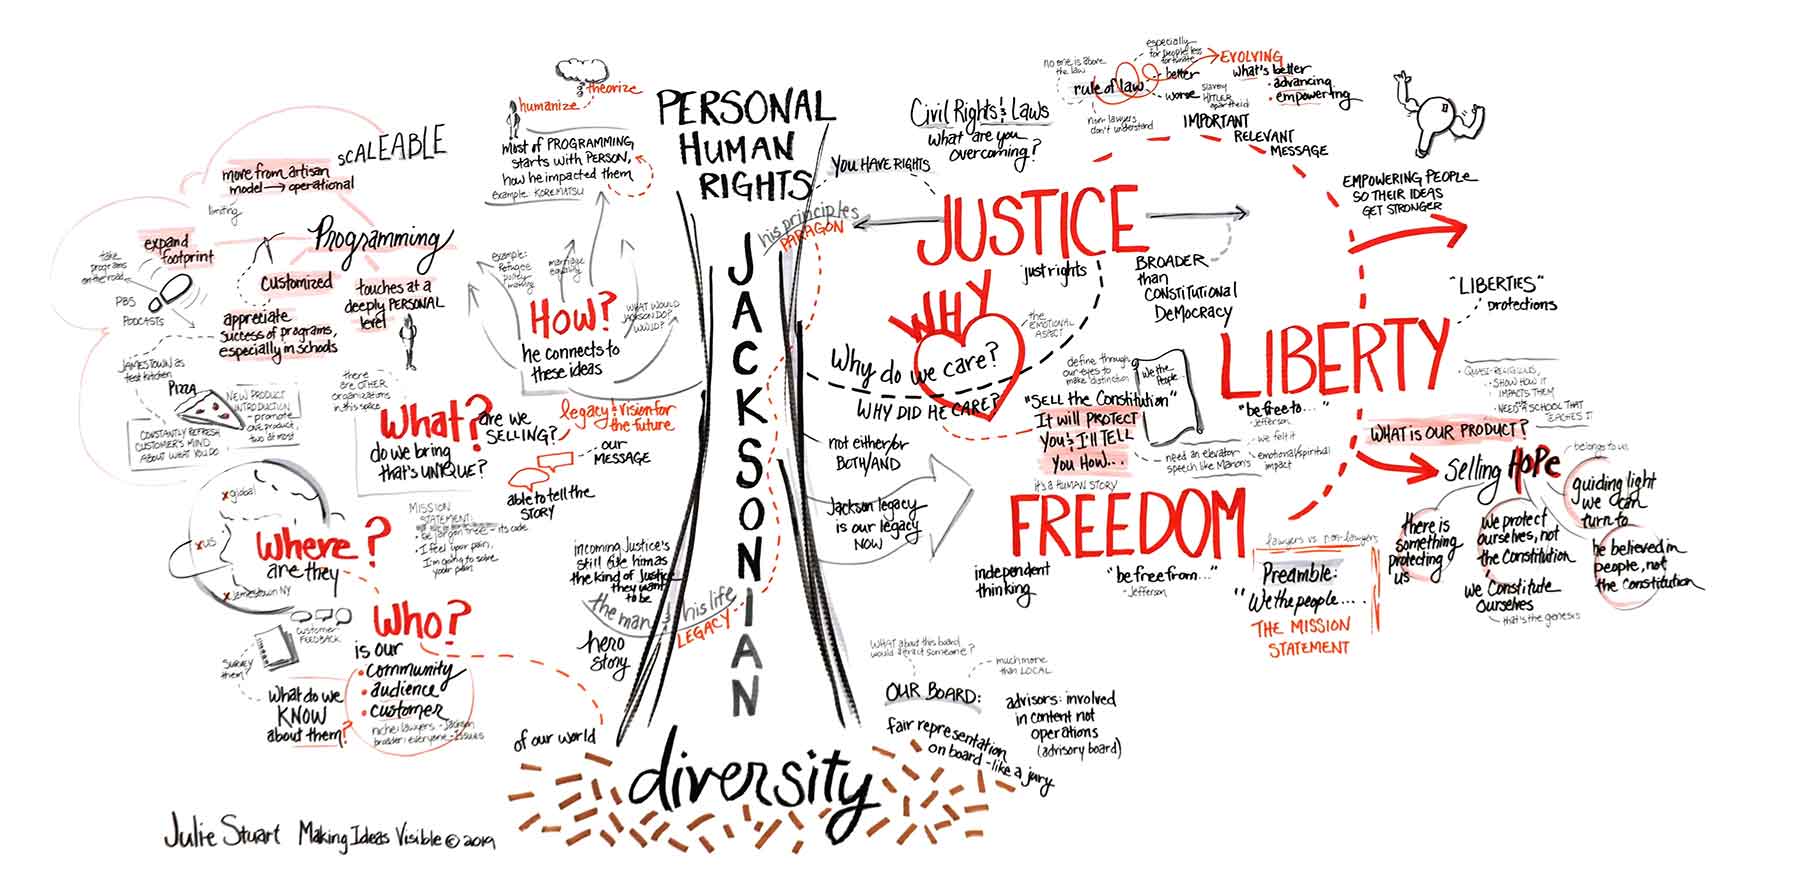 SCALEABLE
more from artisan
model → operational
limiting
Programming
expand
footprint
take
programs
on the road
PBS
PODCASTS
Customized
touches at a
deeply PERSONAL
level
appreciate
success of programs,
especially in schools
JAMESTOWN as
test kitchen
PIZZA
NEW PRODUCT
INTRODUCTION
- promote
one product,
two at most
CONSTANTLY REFRESH
CUSTOMER'S MIND
ABOUT WHAT YOU DO
there
are OTHER
organizations
in this space
What?
do we bring
that's UNIQUE?
are we
SELLING?
legacy & vision for
the future
our
MESSAGE
able to tell the
STORY
MISSION
STATEMENT:
I feel your pain,
I'm going to solve
your pain
x global
x US
x Jamestown NY
Where?
are they
CUSTOMER
FEEDBACK
SURVEY
them?
What do we
KNOW
about them?
Who?
is our
• community
• audience
• customer
niche: lawyers - Jackson
broader: everyone - Issues
of our world
humanize
theorize
most of PROGRAMMING
starts with PERSON,
how he impacted them
example: KOREMATSU
example:
Refugee
policy
making
marriage
equality
WHAT WOULD
JACKSON DO?
WWJD?
How?
he connects to
these ideas
incoming Justice's
still cite him as
the kind of Justice
they want
to be
the man & his life
LEGACY
hero
story
PERSONAL
HUMAN
RIGHTS
JACKSONIAN
his principles
PARAGON
diversity
YOU HAVE RIGHTS
Civil Rights & Laws
what are you
overcoming?
no one is above
the law
rule of law
especially
for people less
fortunate
better
worse
slavery
HITLER
apartheid
non-lawyers
don't understand
EVOLVING
what's better
• advancing
• empowering
IMPORTANT
RELEVANT
MESSAGE
JUSTICE
just rights
BROADER
than
CONSTITUTIONAL
DeMOCRACY
EMPOWERING PEOPLE
SO THEIR IDEAS
GET STRONGER
WHY
Why do we care?
WHY DID HE CARE?
the
EMOTIONAL
ASPECT
not either/or
BOTH/AND
Jackson legacy
is our legacy
NOW
define through
our eyes to
make distinction
We the
People
"SELL the Constitution"
It will PROTECT
You & I'll TELL
You How...
it's a HUMAN STORY
need an elevator
speech like Manon's
we felt it
emotional/spiritual
impact
"LIBERTIES"
protections
LIBERTY
"be free to..."
- Jefferson
• QUASI-RELIGIOUS,
• SHOW HOW IT
IMPACTS THEM
• NEED A SCHOOL THAT
TEACHES IT
WHAT IS OUR PRODUCT?
Selling HOPE
belongs to us
guiding light
we can
turn to
there is
something
protecting
us
we protect
ourselves, not
the Constitution
we Constitute
ourselves
- that's the genesis
he believed in
people, not
the constitution
FREEDOM
independent
thinking
"be free from..."
- Jefferson
lawyers vs non-lawyers
Preamble:
"We the people....
THE MISSION
STATEMENT
WHAT about this board
would attract someone?
much more
than LOCAL
OUR BOARD:
advisors: involved
in content not
operations
(advisory board)
fair representation
on board - like a jury
Julie Stuart Making Ideas Visible © 2019